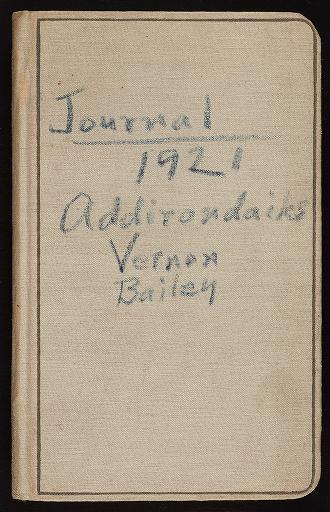 Journal
1921
Addirondaiks
Vernon
Bailey